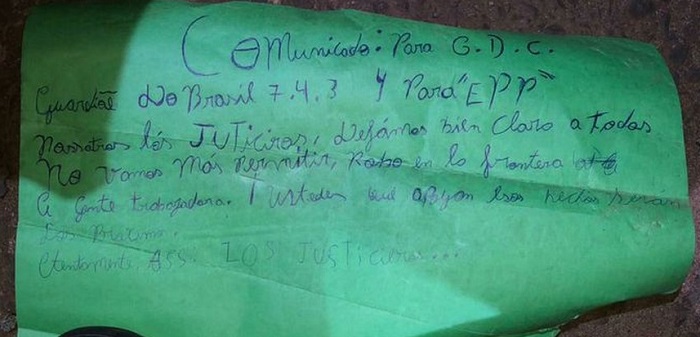 Comunicado: Para G.D.C.
Guardiãe do Brasil 7.4.3 y Pará "EPP"
Nossotros lós JUTiciros, Dejámos bien claro a todos
No vamos más permitir, Robo en la frontera
a gente trabajadora. Y ustedes que apoyan esos hechos serán
Los
Atentamente Ass. LOS JUSTiciros...